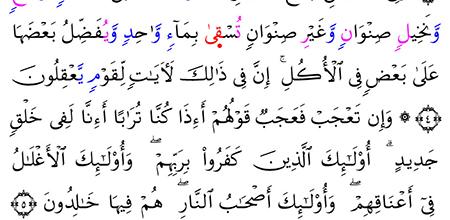 وَنَخِيلٍ صِنْوَانٍ وَغَيْرِ صِنْوَانٍ تُسْقَىٰ بِمَآءٍ وَٰحِدٍ وَيُفَضِّلُ بَعْضَهَا
عَلَىٰ بَعْضٍ فِى ٱلْأُكُلِ ۚ إِنَّ فِى ذَٰلِكَ لَأٓيَٰتٍ لِّقَوْمٍ يَعْقِلُونَ
﴿٤﴾ ۞ وَإِن تَعْجَبْ فَعَجَبٌ قَوْلُهُمْ أَءِذَا كُنَّا تُرَٰبًا أَءِنَّا لَفِى خَلْقٍ
جَدِيدٍ ۗ أُو۟لَٰٓئِكَ ٱلَّذِينَ كَفَرُوا۟ بِرَبِّهِمْ ۖ وَأُو۟لَٰٓئِكَ ٱلْأَغْلَٰلُ
فِىٓ أَعْنَاقِهِمْ ۖ وَأُو۟لَٰٓئِكَ أَصْحَٰبُ ٱلنَّارِ ۖ هُمْ فِيهَا خَٰلِدُونَ ﴿٥﴾